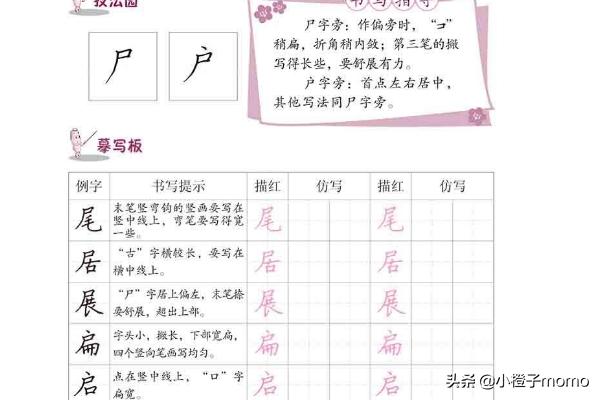 技法园
书写指导
尸 户
尸字旁：作偏旁时，“コ”
稍扁，折角稍内敛；第三笔的撇
写得长些，要舒展有力。
户字旁：首点左右居中，
其他写法同尸字旁。
摹写板
例字 书写提示 描红 仿写 描红 仿写
尾 末笔竖弯钩的竖画要写在
竖中线上，弯笔要写得宽
一些。
尾 尾
居 “古”字横较长，要写在
横中线上。
居 居
展 “尸”字居上偏左，末笔捺
要舒展，超出上部。
展 展
扁 字头小，撇长，下部宽扁，
四个竖向笔画写均匀。
扁 扁
启 点在竖中线上，“口”字
扁宽。
启 启
头条 @小橙子momo